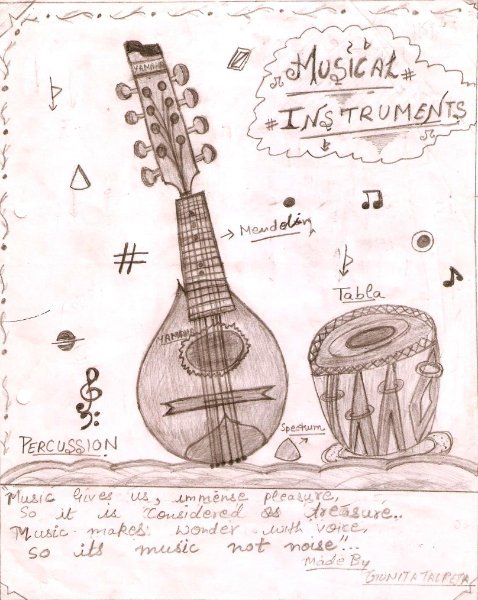 MUSICAL
INSTRUMENTS
YAMAHA
Mendolin
Tabla
YAMAHA
Spectrum
PERCUSSION
"Music Gives us, immense pleasure,
So it is Considered as treasure..
Music makes wonder with voice,
So its music not noise"...
Made By